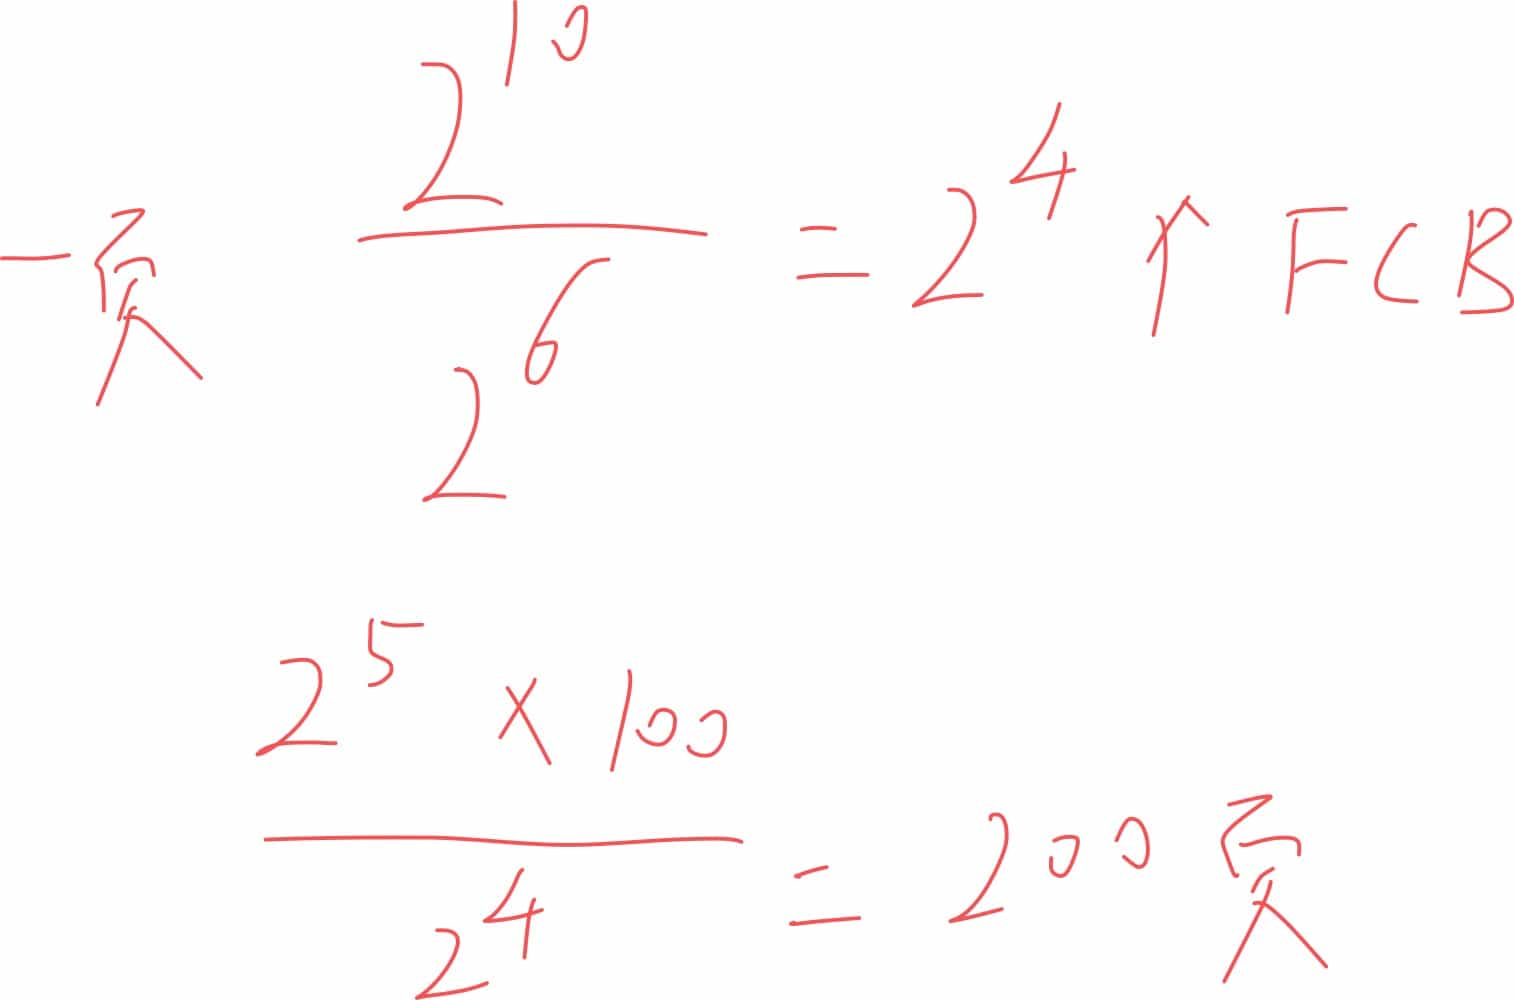 一页 2^10 / 2^6 = 2^4 个 FCB
2^5 × 100 / 2^4 = 200 页